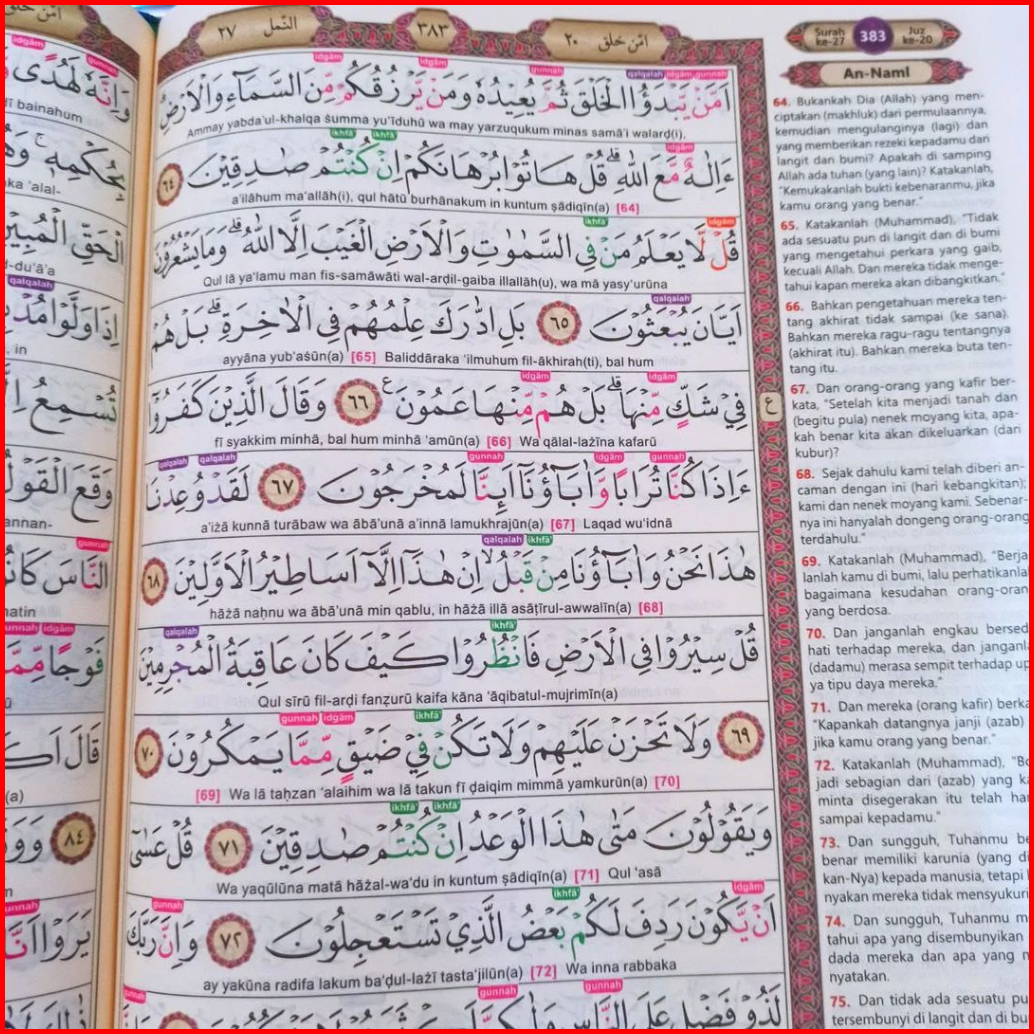 ٢٧ النمل
٣٨٣
امّن خلق ٢٠
Surah ke-27 383 Juz ke-20
An-Naml
اَمَّنْ يَّبْدَؤُا الْخَلْقَ ثُمَّ يُعِيْدُهٗ وَمَنْ يَّرْزُقُكُمْ مِّنَ السَّمَاۤءِ وَالْاَرْضِۗ
Ammay yabda'ul-khalqa ṡumma yu'īduhū wa may yarzuqukum minas samā'i walarḍ(i),
ءَاِلٰهٌ مَّعَ اللّٰهِ ۗقُلْ هَاتُوْا بُرْهَانَكُمْ اِنْ كُنْتُمْ صٰدِقِيْنَ ٦٤
a'ilāhum ma'allāh(i), qul hātū burhānakum in kuntum ṣādiqīn(a) [64]
قُلْ لَّا يَعْلَمُ مَنْ فِى السَّمٰوٰتِ وَالْاَرْضِ الْغَيْبَ اِلَّا اللّٰهُ ۗوَمَا يَشْعُرُوْنَ
Qul lā ya'lamu man fis-samāwāti wal-arḍil-gaiba illallāh(u), wa mā yasy'urūna
اَيَّانَ يُبْعَثُوْنَ ٦٥ بَلِ ادّٰرَكَ عِلْمُهُمْ فِى الْاٰخِرَةِۗ بَلْ هُمْ
ayyāna yub'aṡūn(a) [65] Baliddāraka 'ilmuhum fil-ākhirah(ti), bal hum
فِيْ شَكٍّ مِّنْهَاۗ بَلْ هُمْ مِّنْهَا عَمُوْنَ ࣖ ٦٦ وَقَالَ الَّذِيْنَ كَفَرُوْٓا
fī syakkim minhā, bal hum minhā 'amūn(a) [66] Wa qālal-lażīna kafarū
ءَاِذَا كُنَّا تُرَابًا وَّاٰبَاۤؤُنَآ اَىِٕنَّا لَمُخْرَجُوْنَ ٦٧ لَقَدْ وُعِدْنَا
a'iżā kunnā turābaw wa ābā'unā a'innā lamukhrajūn(a) [67] Laqad wu'idnā
هٰذَا نَحْنُ وَاٰبَاۤؤُنَا مِنْ قَبْلُۙ اِنْ هٰذَآ اِلَّآ اَسَاطِيْرُ الْاَوَّلِيْنَ ٦٨
hāżā naḥnu wa ābā'unā min qablu, in hāżā illā asāṭīrul-awwalīn(a) [68]
قُلْ سِيْرُوْا فِى الْاَرْضِ فَانْظُرُوْا كَيْفَ كَانَ عَاقِبَةُ الْمُجْرِمِيْنَ
Qul sīrū fil-arḍi fanẓurū kaifa kāna 'āqibatul-mujrimīn(a)
٦٩ وَلَا تَحْزَنْ عَلَيْهِمْ وَلَا تَكُنْ فِيْ ضَيْقٍ مِّمَّا يَمْكُرُوْنَ ٧٠
[69] Wa lā taḥzan 'alaihim wa lā takun fī ḍaiqim mimmā yamkurūn(a) [70]
وَيَقُوْلُوْنَ مَتٰى هٰذَا الْوَعْدُ اِنْ كُنْتُمْ صٰدِقِيْنَ ٧١ قُلْ عَسٰٓى
Wa yaqūlūna matā hāżal-wa'du in kuntum ṣādiqīn(a) [71] Qul 'asā
اَنْ يَّكُوْنَ رَدِفَ لَكُمْ بَعْضُ الَّذِيْ تَسْتَعْجِلُوْنَ ٧٢ وَاِنَّ رَبَّكَ
ay yakūna radifa lakum ba'ḍul-lażī tasta'jilūn(a) [72] Wa inna rabbaka
لَذُوْ فَضْلٍ عَلَى النَّاسِ وَلٰكِنَّ
64. Bukankah Dia (Allah) yang men-
ciptakan (makhluk) dari permulaannya,
kemudian mengulanginya (lagi) dan
yang memberikan rezeki kepadamu dari
langit dan bumi? Apakah di samping
Allah ada tuhan (yang lain)? Katakanlah,
"Kemukakanlah bukti kebenaranmu, jika
kamu orang yang benar."
65. Katakanlah (Muhammad), "Tidak
ada sesuatu pun di langit dan di bumi
yang mengetahui perkara yang gaib,
kecuali Allah. Dan mereka tidak menge-
tahui kapan mereka akan dibangkitkan."
66. Bahkan pengetahuan mereka ten-
tang akhirat tidak sampai (ke sana).
Bahkan mereka ragu-ragu tentangnya
(akhirat itu). Bahkan mereka buta ten-
tang itu.
67. Dan orang-orang yang kafir ber-
kata, "Setelah kita menjadi tanah dan
(begitu pula) nenek moyang kita, apa-
kah benar kita akan dikeluarkan (dari
kubur)?
68. Sejak dahulu kami telah diberi an-
caman dengan ini (hari kebangkitan);
kami dan nenek moyang kami. Sebenar-
nya ini hanyalah dongeng orang-orang
terdahulu."
69. Katakanlah (Muhammad), "Berja-
lanlah kamu di bumi, lalu perhatikanla
bagaimana kesudahan orang-oran
yang berdosa.
70. Dan janganlah engkau bersed
hati terhadap mereka, dan janganl
(dadamu) merasa sempit terhadap up
ya tipu daya mereka."
71. Dan mereka (orang kafir) berka
"Kapankah datangnya janji (azab)
jika kamu orang yang benar."
72. Katakanlah (Muhammad), "Bo
jadi sebagian dari (azab) yang k
minta disegerakan itu telah ha
sampai kepadamu."
73. Dan sungguh, Tuhanmu be
benar memiliki karunia (yang di
kan-Nya) kepada manusia, tetapi
nyakan mereka tidak mensyukuri
74. Dan sungguh, Tuhanmu m
tahui apa yang disembunyikan
dada mereka dan apa yang n
nyatakan.
75. Dan tidak ada sesuatu pu
tersembunyi di langit dan di bu